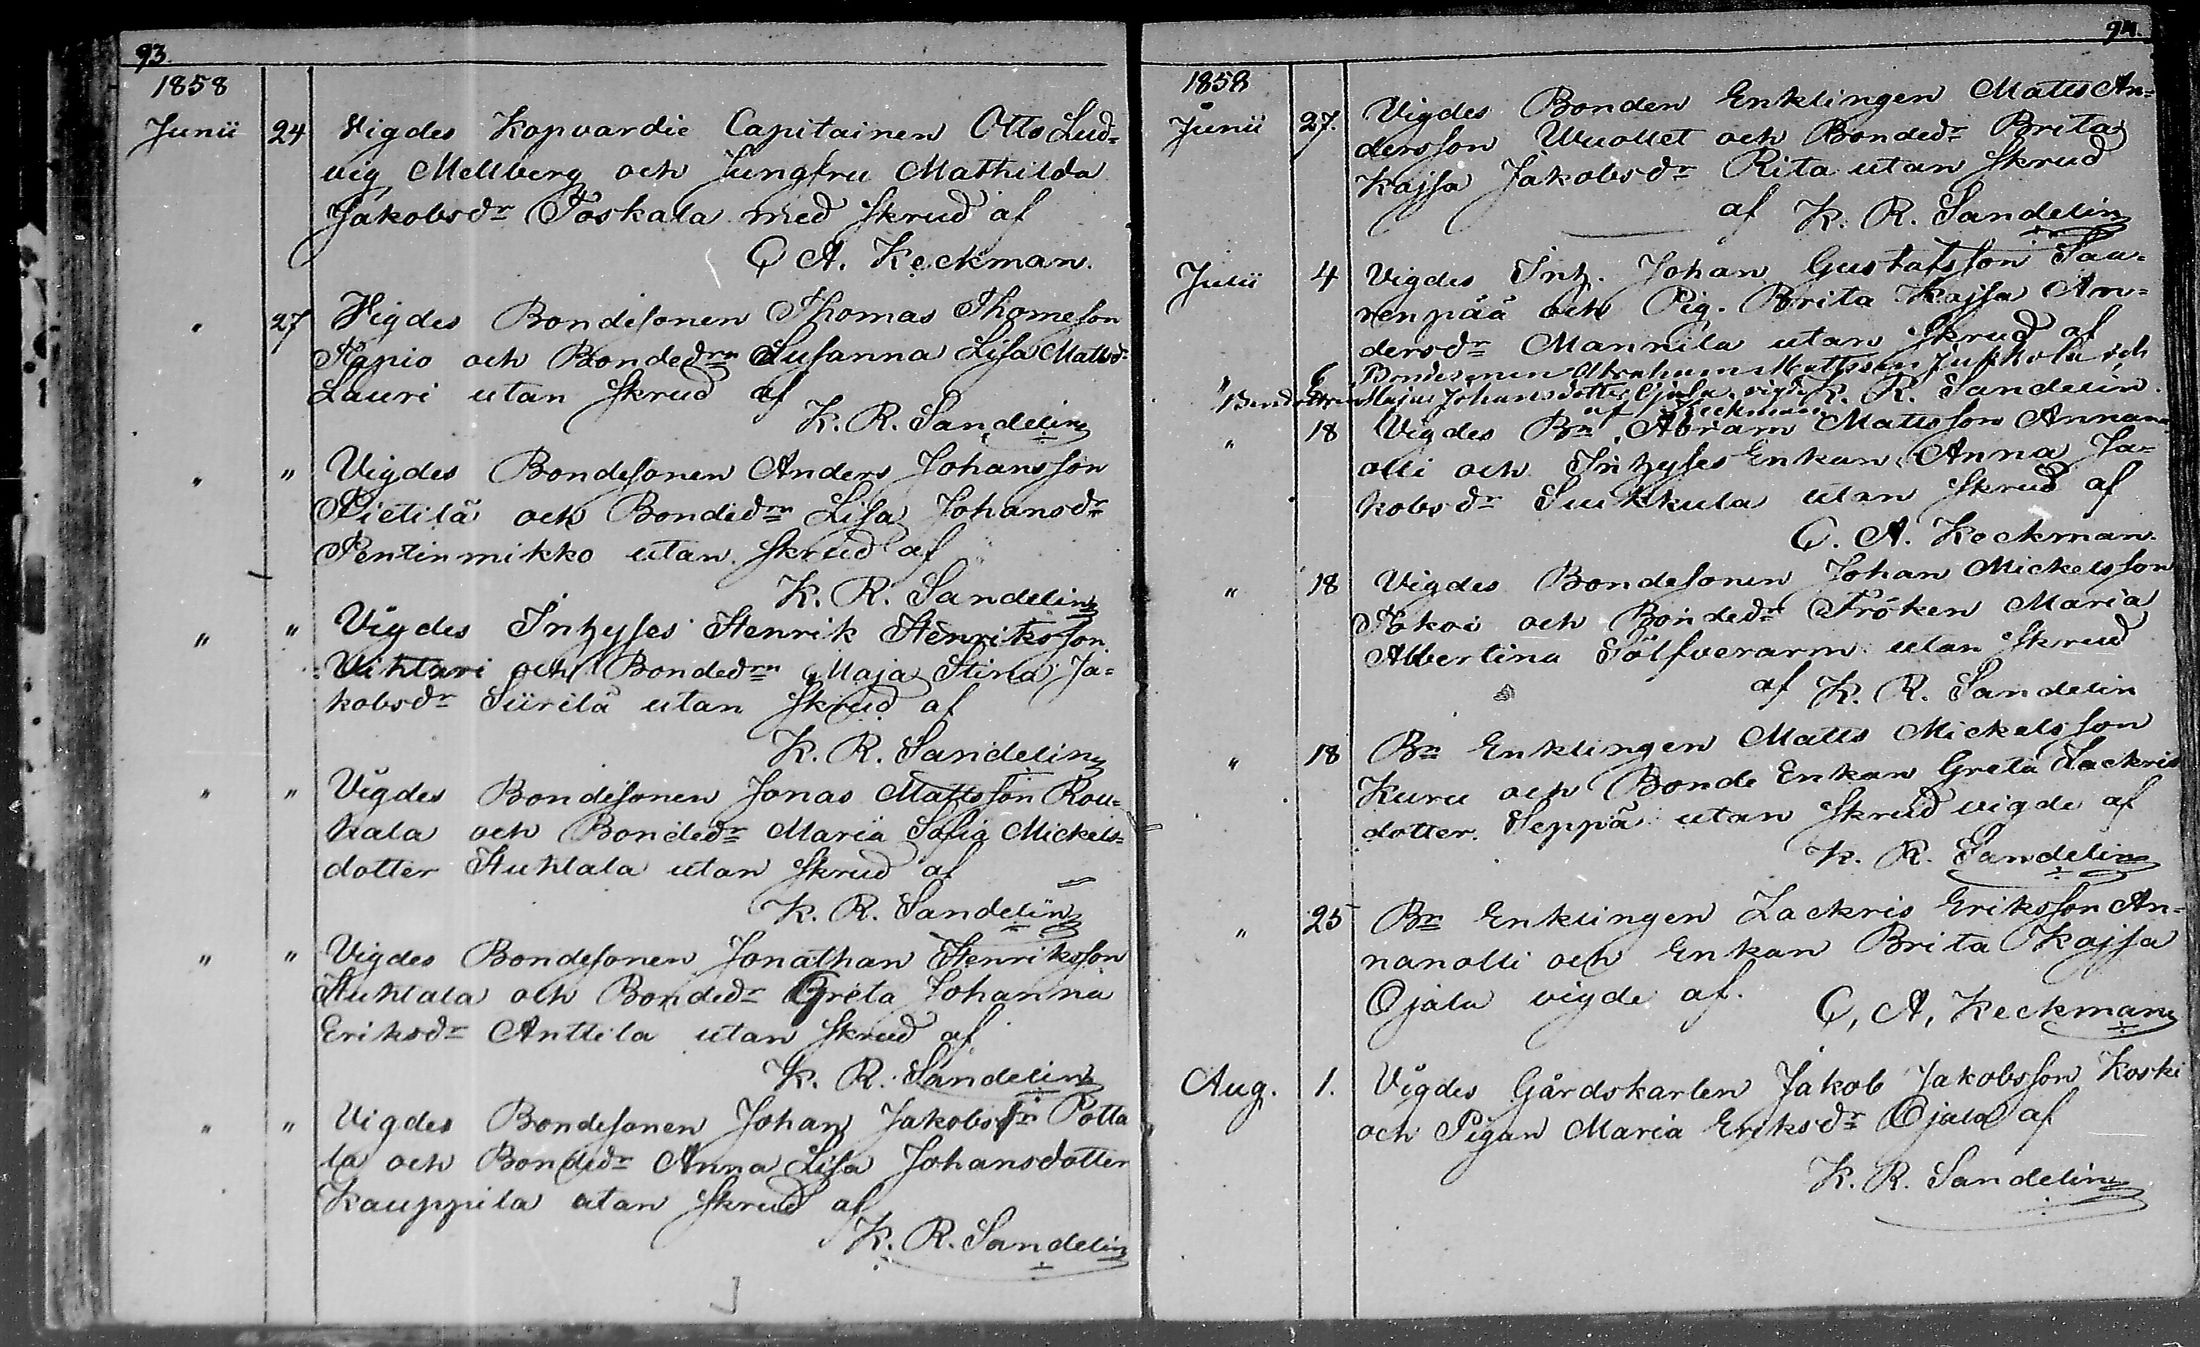 93.
1858
Junii 24 Vigdes Kopvardie Capitainen Otto Lud=
vig Mellberg och Jungfru Mathilda
Jakobsdr Toskala med skrud af
C A. Keckman.
" 27 Vigdes Bondesonen Thomas Thomeson
Papio och Bondedrn Susanna Lisa Mattsdr
Lauri utan skrud af
K. R. Sandelin
" " Vigdes Bondesonen Anders Johansson
Pietilä och Bondedrn Lisa Johansdr
Pentinmikko utan skrud af
K. R. Sandelin
" " Vigdes Inhyses Henrik Henriksson
Vihtari och Bondedrn Maja Stina Ja=
kobsdr Siirilä utan skrud af
K. R. Sandelin
" " Vigdes Bondesonen Jonas Mattsson Rou=
hala och Bondedr Maria Sofia Mickels=
dotter Huhtala utan skrud af
K. R. Sandelin
" " Vigdes Bondesonen Jonathan Henriksson
Huhtala och Bondedr Greta Johanna
Eriksdr Anttila utan skrud af
K. R. Sandelin
" " Vigdes Bondesonen Johan Jakobssn Potta
la och Bondedr Anna Lisa Johansdotter
Kauppila utan skrud af
K. R. Sandelin
94.
1858
Junii 27. Vigdes Bonden Enklingen Matts An=
dersson Wuollet och Bondedr Brita
Kajsa Jakobsdr Rita utan skrud
af K. R. Sandelin
Julii 4 Vigdes Inh. Johan Gustafsson Saa=
renpää och Pig. Brita Kajsa An=
dersdr Mannila utan skrud af
" 6 Bondesonen Abraham Mattsson Juskola och
Bondedottren Maja Johansdotter Ojala vigde K. R. Sandelin.
af Keckman
" 18 Vigdes Bn Abram Mattsson Annan=
olli och Inhyses Enkan Anna Ja=
kobsdr Suikkula utan skrud af
C. A. Keckman.
" 18 Vigdes Bondesonen Johan Mickelsson
Tokoi och Bondedr Fröken Maria
Albertina Sölfverarm utan skrud
af K. R. Sandelin
" 18 Bn Enklingen Matts Mickelsson
Kuru och Bonde Enkan Greta Zackris
dotter Seppä utan skrud vigde af
K. R. Sandelin
" 25 Bn Enklingen Zackris Eriksson An=
nanolli och Enkan Brita Kajsa
Ojala vigde af.
C, A, Keckman
Aug. 1. Vigdes Gårdskarlen Jakob Jakobsson Koski
och Pigan Maria Eriksdr Ojala af
K. R. Sandelin